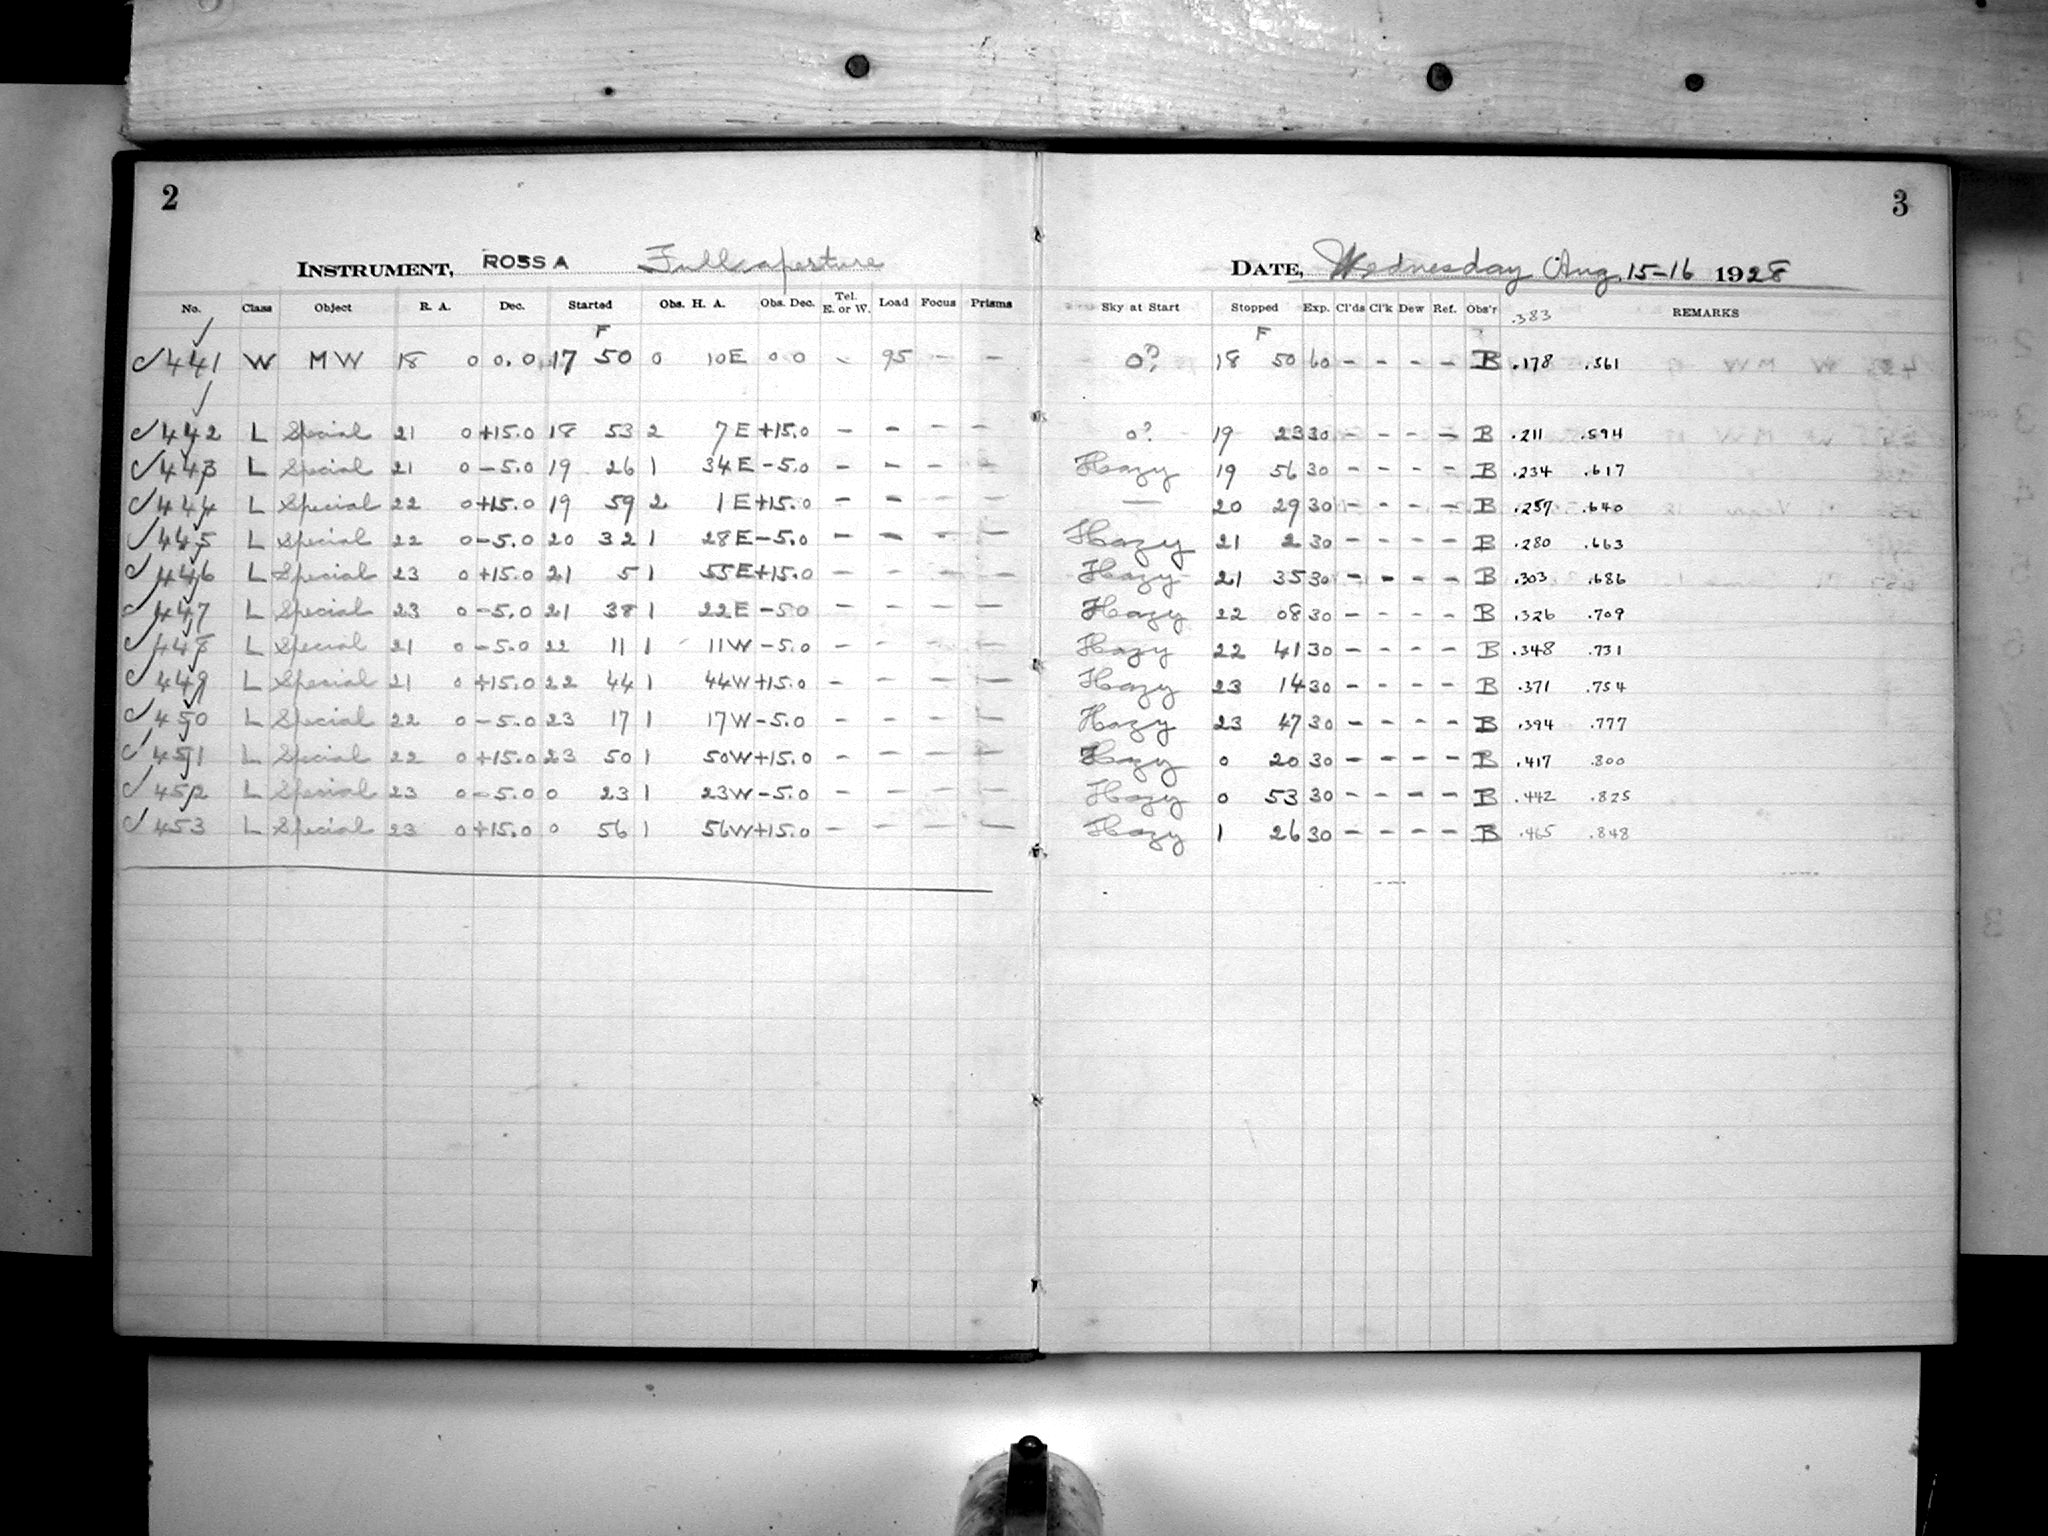 2
3
INSTRUMENT, ROSS A Full aperture
DATE, Wednesday Aug. 15-16 1928
No. Class Object R. A. Dec. Started Obs. H. A. Obs. Dec. Tel. E. or W. Load Focus Prisms Sky at Start Stopped Exp. Cl'ds Cl'k Dew Ref. Obs'r .383 REMARKS
F F
✓441 W MW 18 0 0.0 17 50 0 10E 0 0 - 95 - - 0? 18 50 60 - - - - B .178 .561
✓442 L Special 21 0 +15.0 18 53 2 7E +15.0 - - - - 0? 19 23 30 - - - - B .211 .594
✓443 L Special 21 0 -5.0 19 26 1 34E -5.0 - - - - Hazy 19 56 30 - - - - B .234 .617
✓444 L Special 22 0 +15.0 19 59 2 1E +15.0 - - - - — 20 29 30 - - - - B .257 .640
✓445 L Special 22 0 -5.0 20 32 1 28E -5.0 - - - - Hazy 21 2 30 - - - - B .280 .663
✓446 L Special 23 0 +15.0 21 5 1 55E +15.0 - - - - Hazy 21 35 30 - - - - B .303 .686
✓447 L Special 23 0 -5.0 21 38 1 22E -50 - - - - Hazy 22 08 30 - - - - B .326 .709
✓448 L Special 21 0 -5.0 22 11 1 11W -5.0 - - - - Hazy 22 41 30 - - - - B .348 .731
✓449 L Special 21 0 +15.0 22 44 1 44W +15.0 - - - - Hazy 23 14 30 - - - - B .371 .754
✓450 L Special 22 0 -5.0 23 17 1 17W -5.0 - - - - Hazy 23 47 30 - - - - B .394 .777
✓451 L Special 22 0 +15.0 23 50 1 50W +15.0 - - - - Hazy 0 20 30 - - - - B .417 .800
✓452 L Special 23 0 -5.0 0 23 1 23W -5.0 - - - - Hazy 0 53 30 - - - - B .442 .825
✓453 L Special 23 0 +15.0 0 56 1 56W +15.0 - - - - Hazy 1 26 30 - - - - B .465 .848